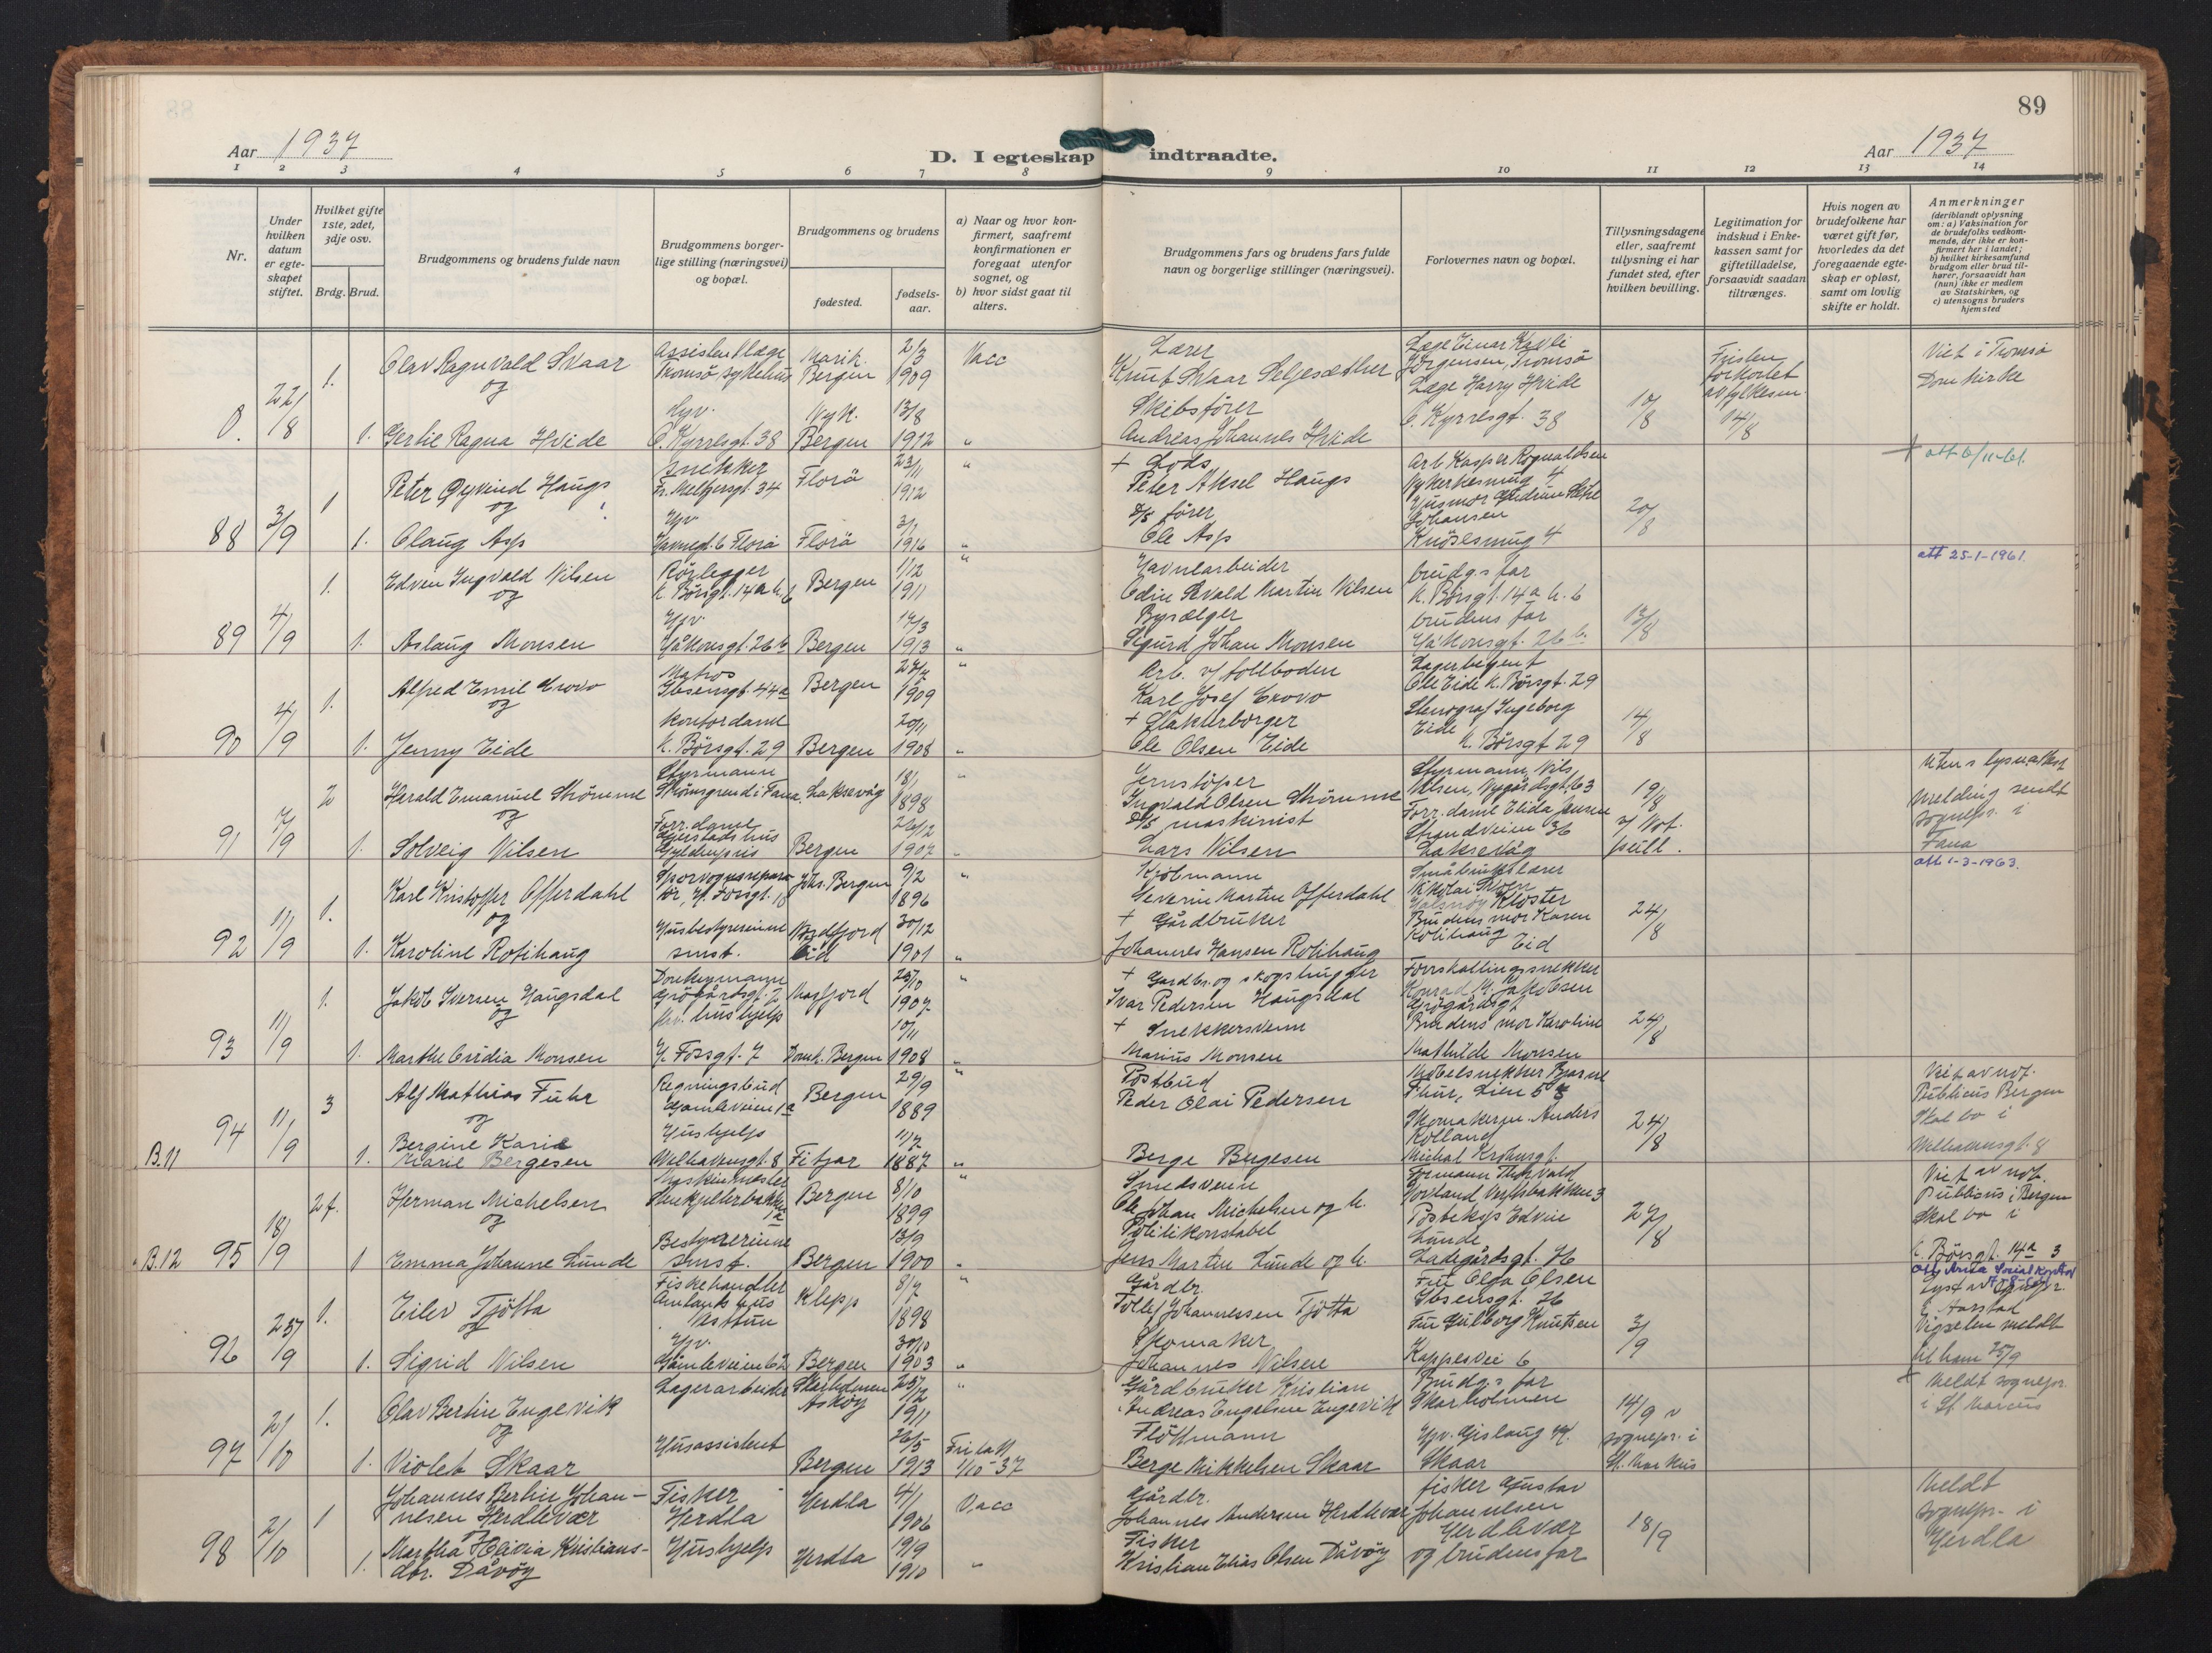 89
Aar 1937
D. I egteskap indtraadte.
Aar 1937
1 2 3 4 5 6 7 8 9 10 11 12 13 14
Nr.
Under hvilken datum er egteskapet stiftet.
Hvilket gifte 1ste, 2det, 3dje osv.
Brdg. Brud.
Brudgommens og brudens fulde navn
Brudgommens borgerlige stilling (næringsvei) og bopæl.
Brudgommens og brudens
fødested.
fødselsaar.
a) Naar og hvor konfirmert, saafremt konfirmationen er foregaat utenfor sognet, og
b) hvor sidst gaat til alters.
Brudgommens fars og brudens fars fulde navn og borgerlige stillinger (næringsvei).
Forlovernes navn og bopæl.
Tillysningsdagene eller, saafremt tillysning ei har fundet sted, efter hvilken bevilling.
Legitimation for indskud i Enkekassen samt for giftetilladelse, forsaavidt saadan tiltrænges.
Hvis nogen av brudefolkene har været gift før, hvorledes da det foregaaende egteskap er opløst, samt om lovlig skifte er holdt.
Anmerkninger (deriblandt oplysning om: a) Vaksination for de brudefolks vedkommende, der ikke er konfirmert her i landet; b) hvilket kirkesamfund brudgom eller brud tilhører, forsaavidt han (hun) ikke er medlem av Statskirken, og c) utensogns bruders hjemsted
0. 22/8 1. Olav Ragnvald Skaar Assistentlæge Tromsø sykehus Marik. Bergen 2/3 1909 Vacc Lærer Knut Skaar Seljesæther Læge Einar Kavli Jørgensen, Tromsø Fristen forkortet av fylkesm. 14/8 Viet i Tromsø Domkirke
og
1. Gertie Ragna Hvide Hjv. O. Kyrresgt. 38 Nyk. Bergen 13/8 1912 " Skibsfører Andreas Johannes Hvide Læge Harry Hvide O. Kyrresgt. 38 10/8
88 3/9 1 Peter Øyvind Haugs snekker Fr. Meltzersgt. 34 Florø 23/11 1912 " + Lods Peter Aksel Haugs Arb. Kasper Rognaldsen Nykerkesmug 4 att 6/11-61.
og
1. Olaug Asp Hjv. Havnegt. 6 Florø Florø 3/7 1916 " D/S fører Ole Asp Husmor Gudrun Johansen Knøsesmug 4 20/8
89 4/9 1. Edvin Ingvald Nilsen Rørlegger K. Børsgt. 14a h. b Bergen 1/12 1911 " Havnearbeider Edin Sevald Martin Nilsen brudg.s far K. Børsgt. 14a h. b att 25-1-1961.
og
1. Aslaug Monsen Hjv. Håkonsgt. 26b Bergen 17/3 1913 " Bysælger Sigurd Johan Monsen brudens far Håkonsgt. 26b. 13/8
90 4/9 1. Alfred Emil Erovo Matros Ibsensgt. 44a Bergen 27/7 1909 " Arb. v/ tollboden Karl Josef Erovo Lagerbetjent Ole Eide K. Børsgt. 29
og
1. Jenny Eide kontordame K. Børsgt. 29 Bergen 20/11 1908 " + Slakterborger Ole Olsen Eide Stenograf Ingeborg Eide K. Børsgt 29 14/8
91 7/9 2 Harald Emanuel Strømme Styrmann Strømsgrend i Fana Laksevåg 18/1 1898 " Jernstøper Ingvald Olsen Strømme Styrmann Nils Nilsen, Nygårdsgt. 63 19/8 v/ Not. publ. Utens lysn. attest melding sendt sognepr. i Fana
og
1. Solveig Nilsen Forr. dame Gyldenpris Bergen 26/12 1907 " D/S maskinist Lars Nilsen Forr. dame Elida Jensen Strandveien 36 Laksevåg
92 11/9 1. Karl Kristoffer Offerdahl Sporvognsreparatør, H. Fossgt. 18 Johs. Bergen 9/2 1896 " Kjøbmann Severin Martin Offerdahl Småbruklærer Nikolai Halsnøy Kloster att 1-3-1963.
og
1. Karoline Rotihaug Husbestyrerinne smst. Nordfjord Eid 30/12 1901 " + Gårdbruker Johannes Hansen Rotihaug Brudens mor Karen Rotihaug Eid 24/8
93 11/9 1. Jakob Iversen Haugsdal Donkeymann Grøgårdsgt. 2 Masfjord 25/10 1907 " + Gardbr. og skogshugger Ivar Pedersen Haugsdal Forrskallingssnekker Konrad M. Jakobsen Grøgårdsgt.
og
1. Marthe Ovidia Monsen frv. hushjelp H. Fossgt. 7 Domk. Bergen 10/11 1908 " + Snekkersvenn Marius Monsen Brudens mor Karoline Mathilde Monsen 24/8
B.11 94 11/9 3 Alf Mathias Fuhr Regningsbud Gamleveien 1a Bergen 29/9 1889 " Postbud Peder Olai Pedersen Møbelsnekker Bjarne Fuhr, Lien 58 Viet av not. Publicus Bergen Skal bo i Welhavensgt. 8
og
1. Bergine Karie Marie Bergesen Hushjelp Welhavensgt. 8 Fitjar 11/7 1887 " Berge Bergesen Skomakerm. Anders Rolland Michal Krohnsgt. 24/8
B.12 95 18/9 2f. Herman Michelsen Maskinmester Bergen 8/10 1899 " Smedsvenn Ole Johan Michelsen og h. Formann Thorvald Hovland 3 Viet av not. Publicus i Bergen Skal bo i K. Børsgt. 14a 3
og
1 Emma Johanne Lunde Bestyrerinne smst. Bergen 13/9 1900 " Politikonstabel Jens Martin Lunde og h. Posteksp. Edvin Lunde Ladegårdsgt. 76 27/8
96 25/9 1. Eilev Tjøtta Fiskehandler Nesttun Klepp 8/7 1898 " Gårdbr. Tollef Johannessen Tjøtta Fru Olga Olsen Ibsensgt. 76 Lyst av sognepr. i Aarstad Vigselen meldt til ham 25/9
og
1. Sigrid Nilsen Hjv. Gamleveien 62 Bergen 30/10 1903 " Skomaker Johannes Nilsen Fru Gulborg Knutsen Kappesvei 6 3/9
97 2/10 1. Olav Bertin Engevik Lagerarbeider Skarholmen Askøy 25/12 1911 " Gårdbruker Kristian Andreas Engelsen Engevik Brudg.s far Skarholmen 14/9 v sognepr. i St. Markus Meldt sognepr. i St. Marcus
og
1. Violet Skaar Husassistent Bergen 26/5 1913 Friatt 1/10-37 Fløttmann Berge Mikkelsen Skaar Hjv. Gislaug M. Skaar
98 2/10 1 Johannes Bertin Johannesen Herdlevær Fisker Herdla Herdla 4/1 1906 Vacc Gårdbr. Johannes Andersen Herdlevær fisker Gustav Johannesen Herdlevær 18/9 Meldt sognepr. i Herdla
og
1. Martha Olivia Kristiansdtr. Dåvøy Hushjelp Herdla 19/9 1910 " Fisker Kristian Elias Olsen Dåvøy og brudens far